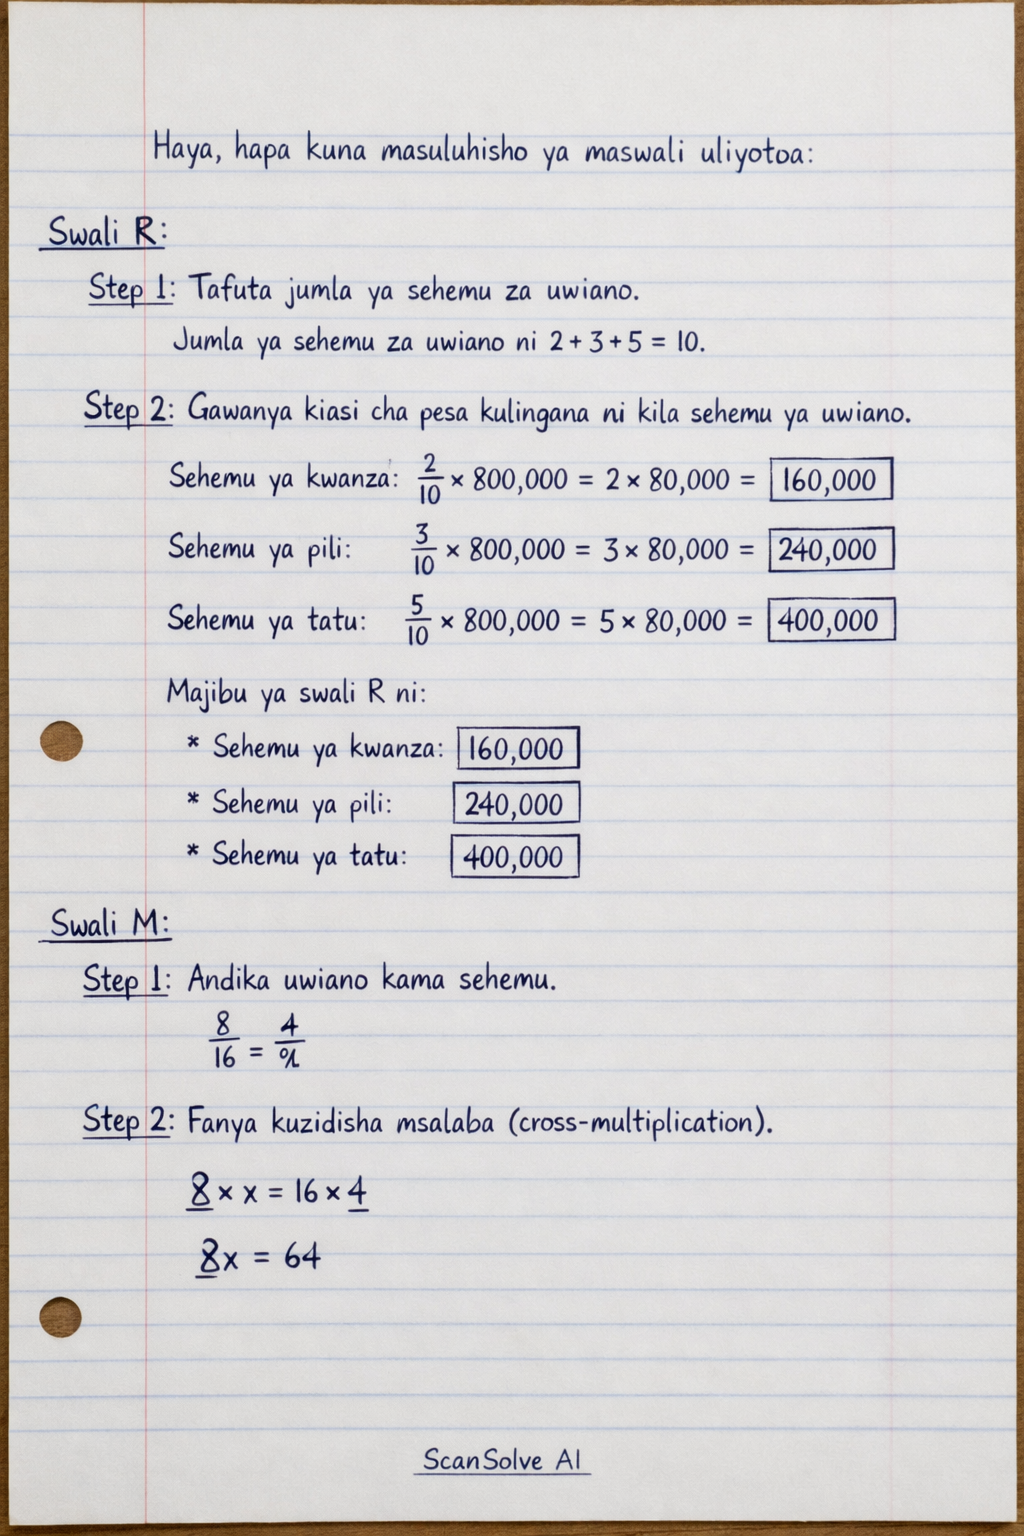 Haya, hapa kuna masuluhisho ya maswali uliyotoa:
Swali R:
Step 1: Tafuta jumla ya sehemu za uwiano.
Jumla ya sehemu za uwiano ni 2 + 3 + 5 = 10.
Step 2: Gawanya kiasi cha pesa kulingana ni kila sehemu ya uwiano.
Sehemu ya kwanza: 2/10 × 800,000 = 2 × 80,000 = 160,000
Sehemu ya pili: 3/10 × 800,000 = 3 × 80,000 = 240,000
Sehemu ya tatu: 5/10 × 800,000 = 5 × 80,000 = 400,000
Majibu ya swali R ni:
* Sehemu ya kwanza: 160,000
* Sehemu ya pili: 240,000
* Sehemu ya tatu: 400,000
Swali M:
Step 1: Andika uwiano kama sehemu.
8/16 = 4/
Step 2: Fanya kuzidisha msalaba (cross-multiplication).
8 × x = 16 × 4
8x = 64
ScanSolve AI